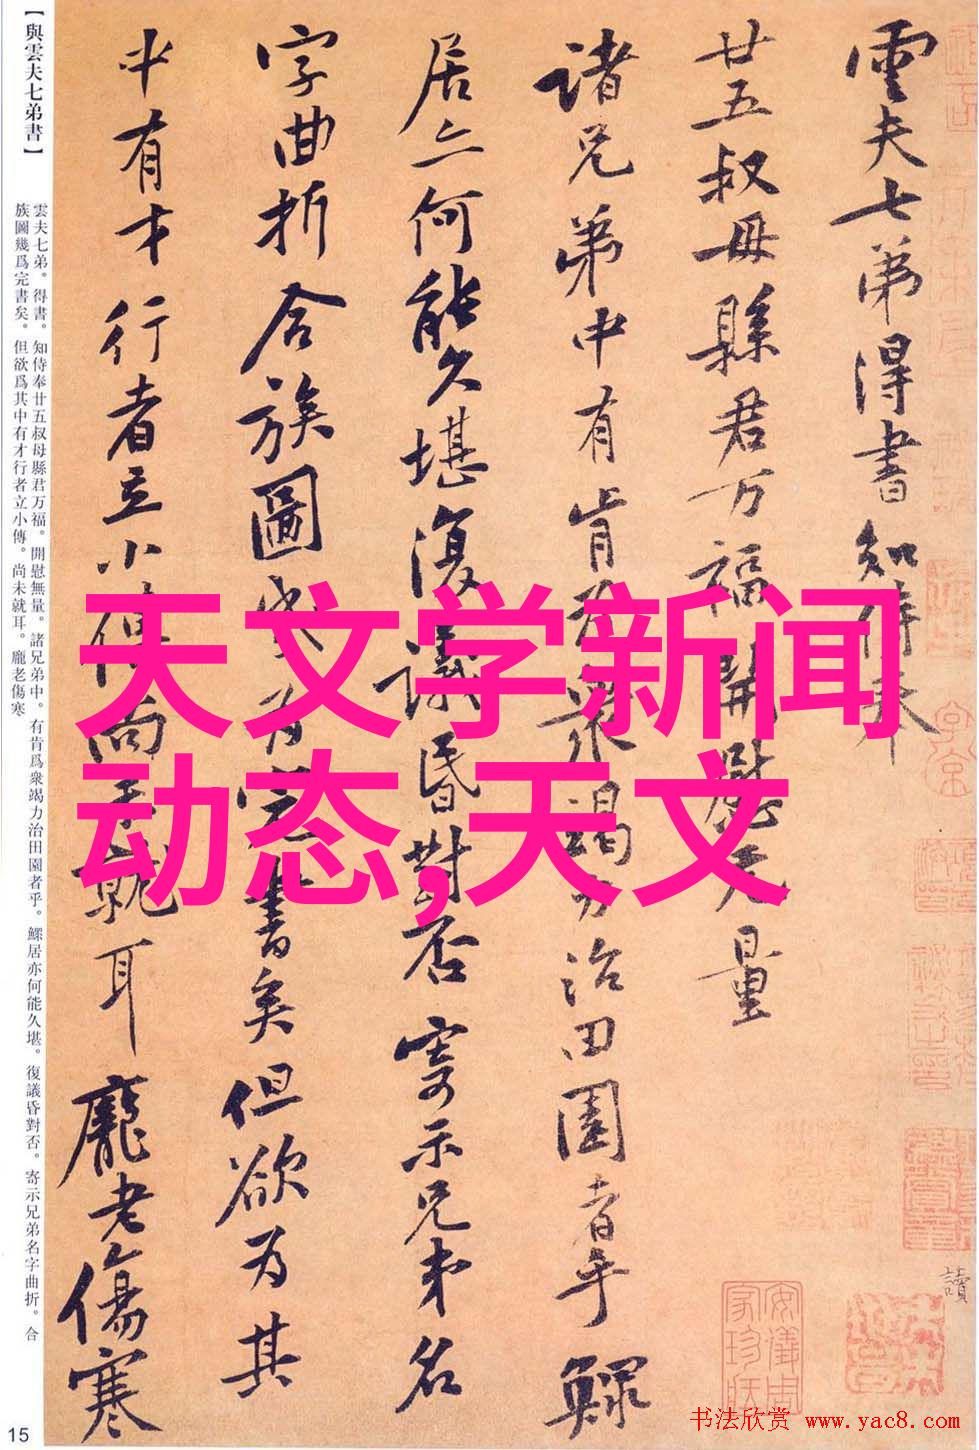 雲夫七弟得書知侍奉
廿五叔母縣君万福開慰无量
諸兄弟中有肯为衆竭力治田園者乎鰥
居亦何能久堪復議昏對否寄示兄弟名
字曲折合族圖幾为完書矣但欲为其
中有才行者立小傳尚未就耳龐老傷寒
讀
安儀周
家珍藏
天文学新闻
动态,天文
【與雲夫七弟書】
雲夫七弟。得書。知侍奉廿五叔母縣君万福。開慰無量。諸兄弟中。有肯爲衆竭力治田園者乎。鰥居亦何能久堪。復議昏對否。寄示兄弟名字曲折。合
族圖幾爲完書矣。但欲爲其中有才行者立小傳。尚未就耳。龐老傷寒
15
书法欣赏 www.yac8.com